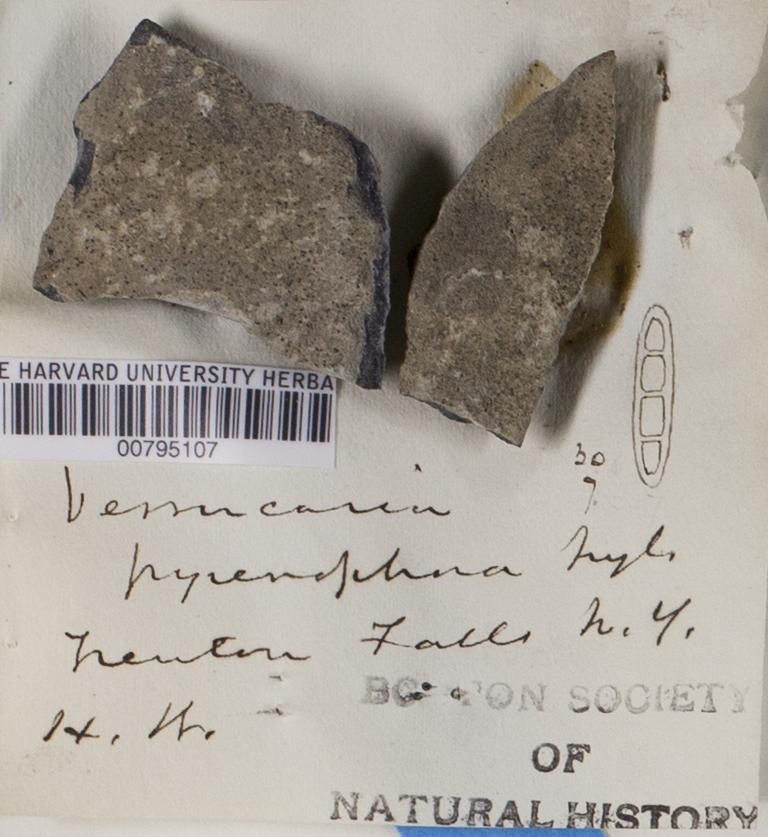 E HARVARD UNIVERSITY HERBA
00795107
30
9
Verrucaria
pyrenophora Nyl.
Trenton Falls N.Y.
H. W.
BOSTON SOCIETY
OF
NATURAL HISTORY